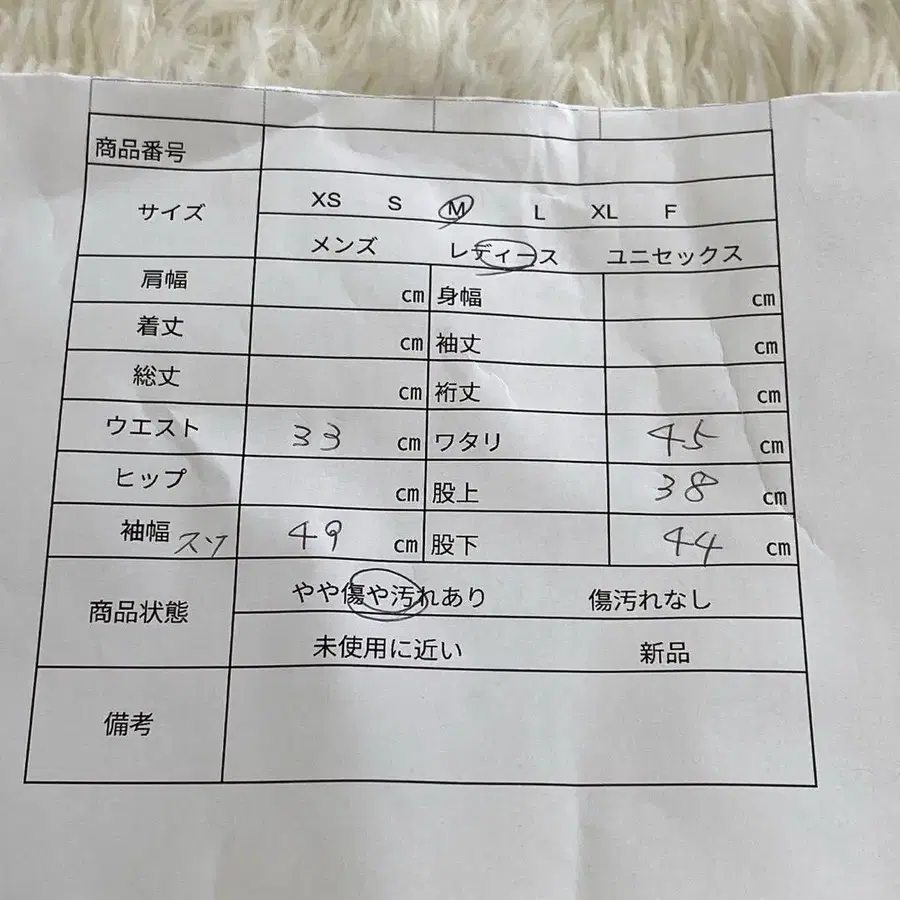 商品番号
サイズ XS S M L XL F
メンズ レディース ユニセックス
肩幅 cm 身幅 cm
着丈 cm 袖丈 cm
総丈 cm 裄丈 cm
ウエスト 33 cm ワタリ 45 cm
ヒップ cm 股上 38 cm
袖幅 スソ 49 cm 股下 44 cm
商品状態 やや傷や汚れあり 傷汚れなし
未使用に近い 新品
備考